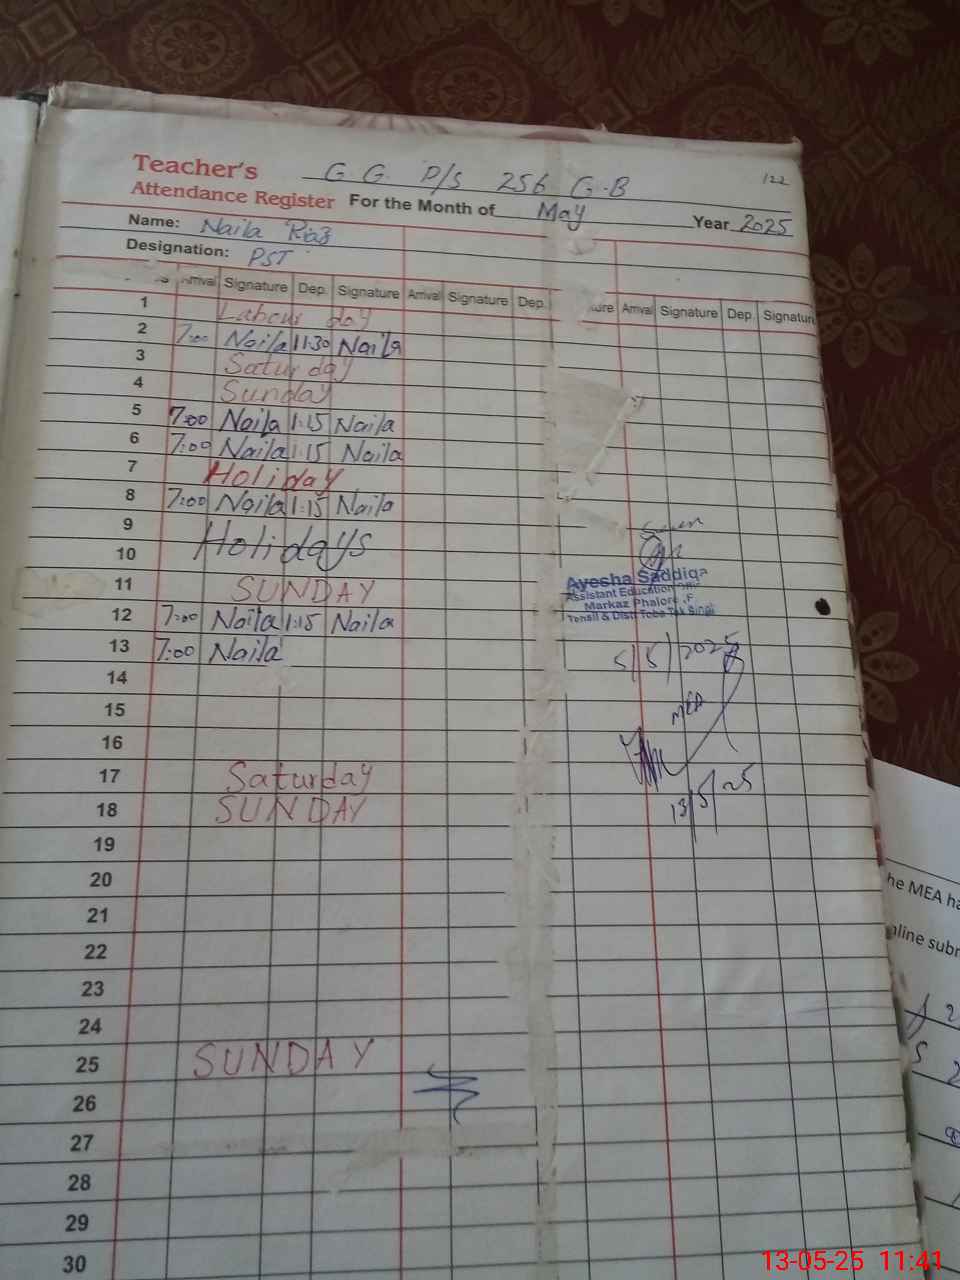 122
Teacher's G G P/S 256 G-B
Attendance Register For the Month of May Year 2025
Name: Naila Riaz
Designation: PST
Arrival Signature Dep. Signature Arrival Signature Dep. Arrival Signature Dep. Signature
1 Labour day
2 7:00 Naila 11:30 Naila
3 Saturday
4 Sunday
5 7:00 Naila 1:15 Naila
6 7:00 Naila 1:15 Naila
7 Holiday
8 7:00 Naila 1:15 Naila
9 Holidays
10
11 SUNDAY
12 7:00 Naila 1:15 Naila
13 7:00 Naila
14
15
16
17 Saturday
18 SUNDAY
19
20
21
22
23
24
25 SUNDAY
26
27
28
29
30
Seen
Ayesha Saddiqa
Assistant Education
Markaz Phalore .F
Tehsil & Distt Toba Tek Singh
5/5/2025
MEA
13/5/25
he MEA ha
nline subm
13-05-25 11:41